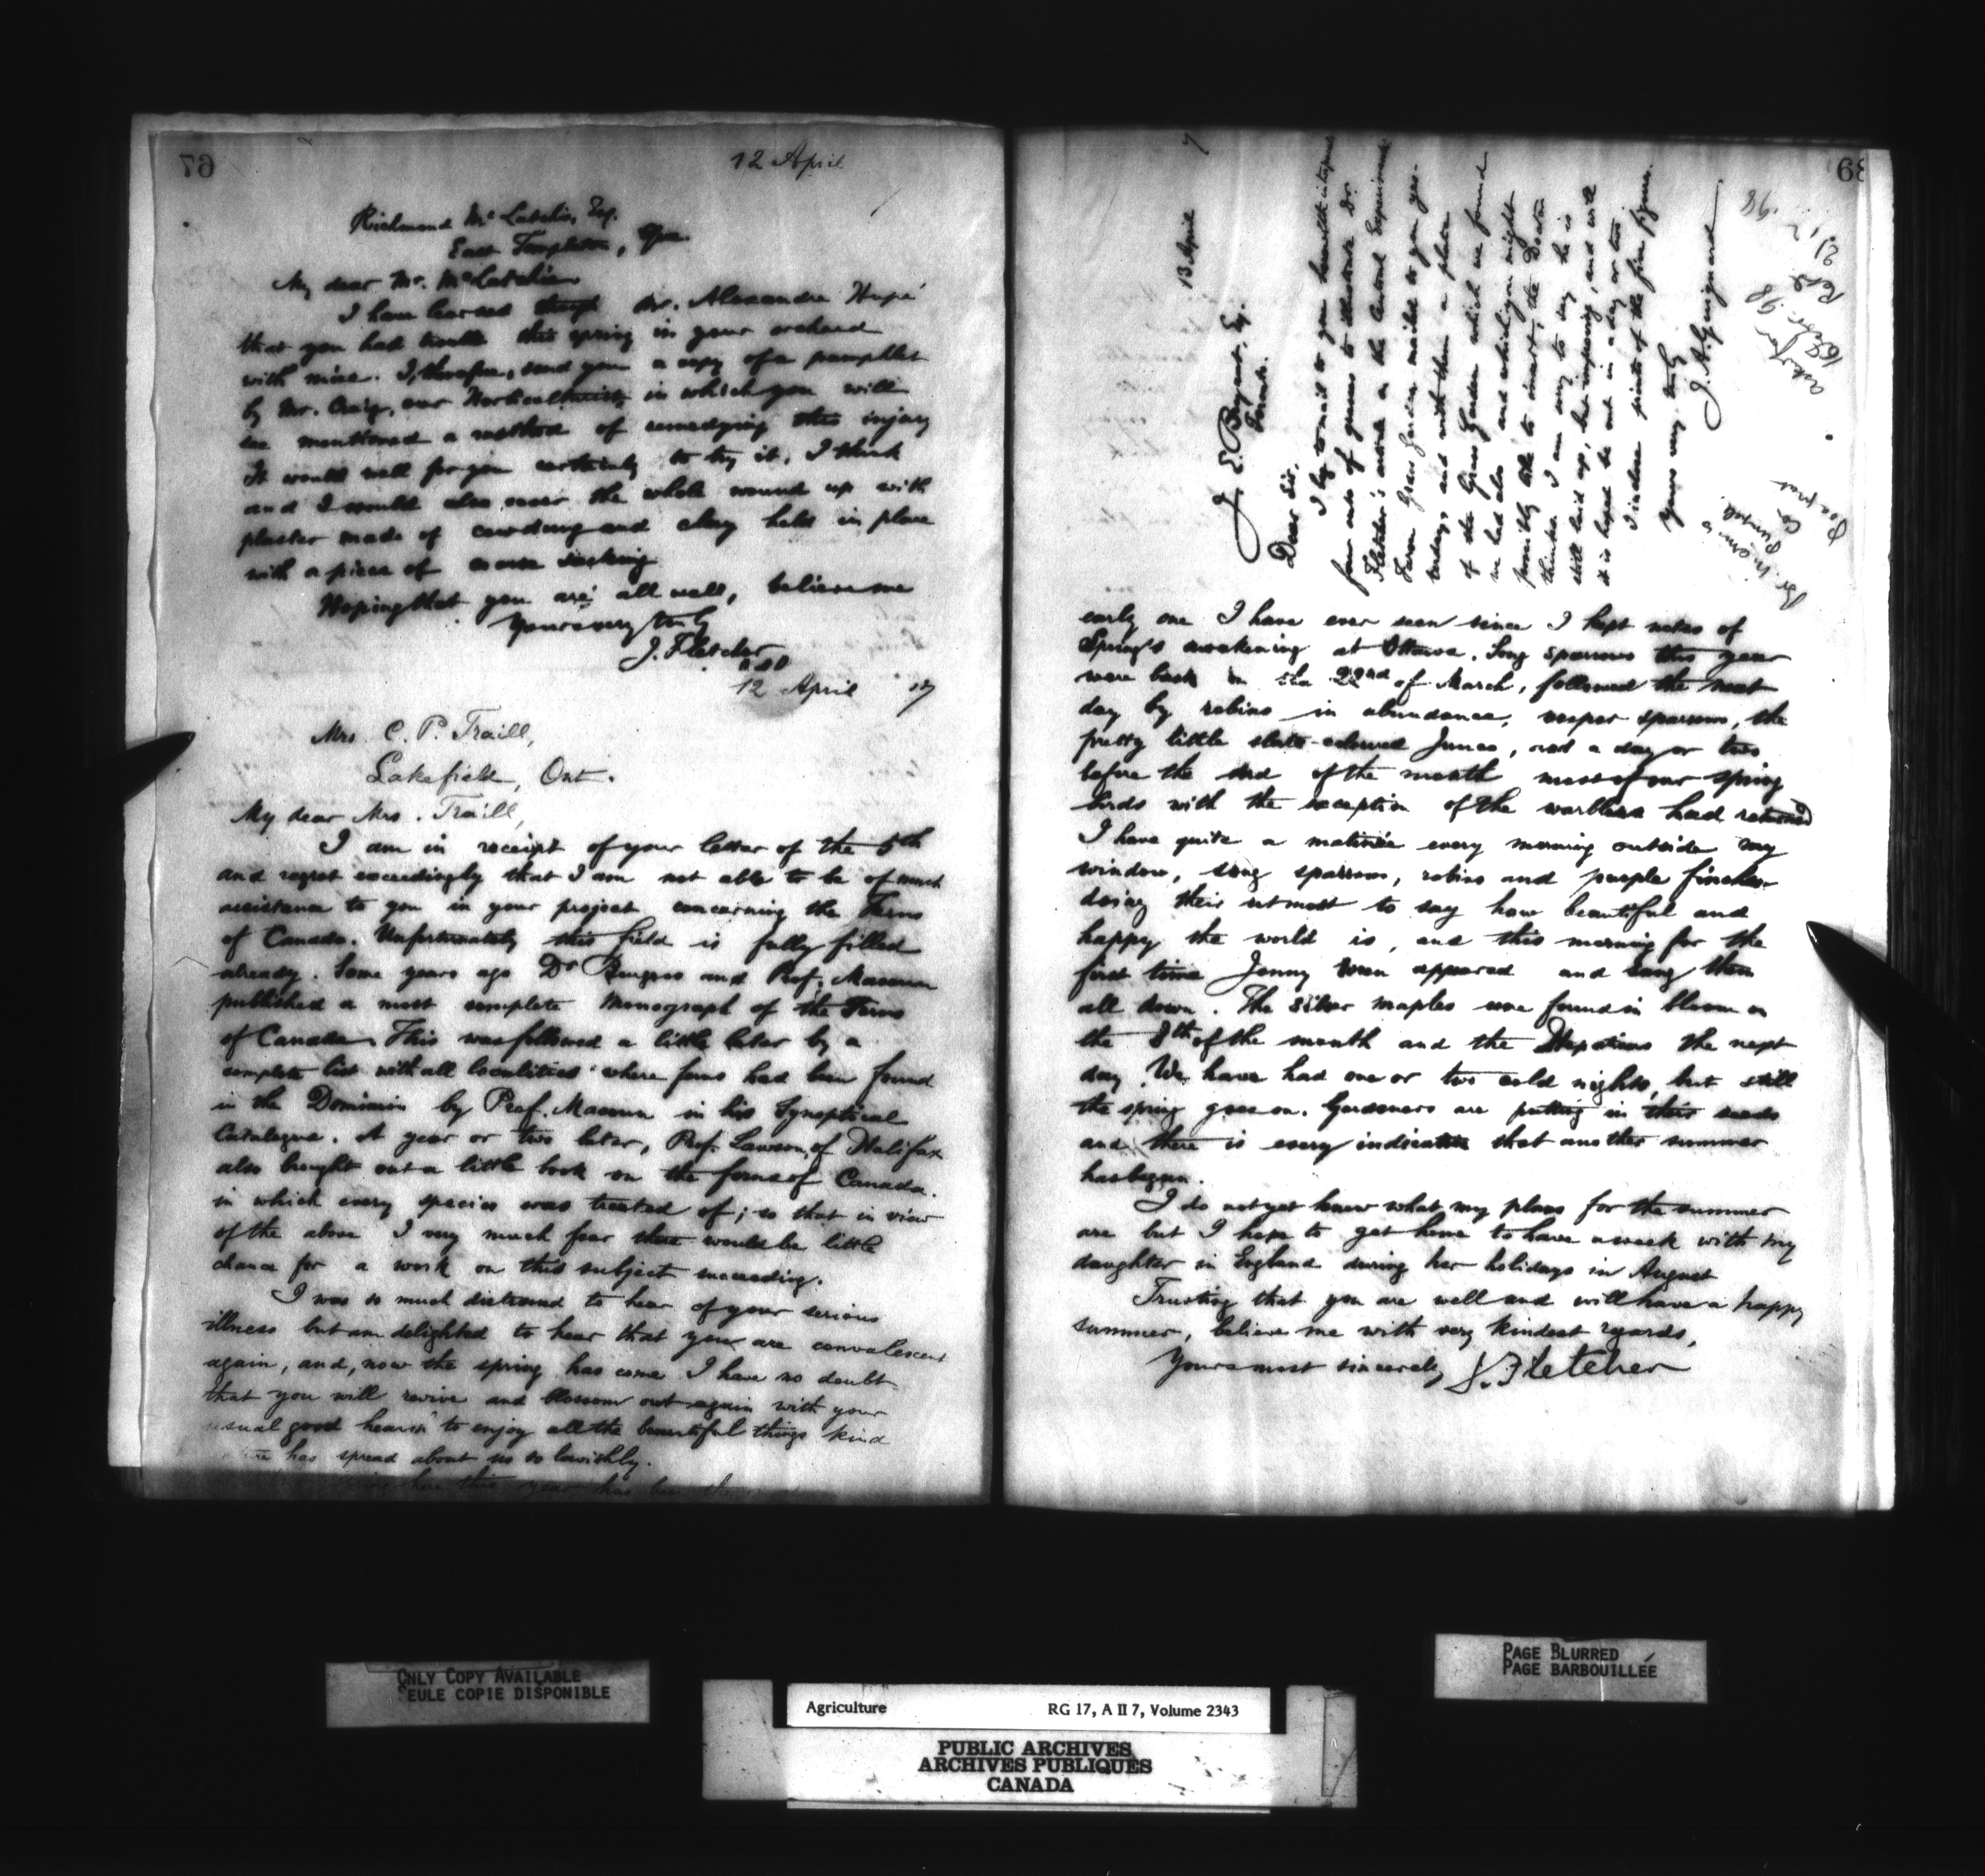 67
12 April
Richmond Mc Latchie, Esq.
East Templeton, Que.
My dear Mr. McLatchie
I have learned through Mr. Alexander Hope
that you had trouble this spring in your orchard
with mice. I, therefore, send you a copy of a pamphlet
by Mr. Craig, our Horticulturist in which you will
see mentioned a method of remedying this injury
It would well for you certainly to try it, I think
and I would also cover the whole wound up with
plaster made of cowdung and clay held in place
with a piece of coarse sacking
Hoping that you are all well, believe me
Yours very truly
J. Fletcher
12 April 97
Mrs. C. P. Traill,
Lakefield, Ont.
My dear Mrs. Traill,
I am in receipt of your letter of the 5th
and regret exceedingly that I am not able to be of much
assistance to you in your project concerning the Ferns
of Canada. Unfortunately this field is fully filled
already. Some years ago Dr Burgess and Prof. Macoun
published a most complete Monograph of the Ferns
of Canada. This was followed a little later by a
complete list with all localities where ferns had been found
in the Dominion by Prof. Macoun in his Synoptical
Catalogue. A year or two later, Prof. Lawson, of Halifax
also brought out a little book on the ferns of Canada.
in which every species was treated of; so that in view
of the above I very much fear there would be little
chance for a work on this subject succeeding.
I was so much distressed to hear of your serious
illness but am delighted to hear that you are convalescent
again, and, now the spring has come I have no doubt
that you will revive and blossom out again with your
usual good health to enjoy all the beautiful things kind
has spread about us so lavishly.
here this year has been the
68
13 April 7
J. E. Bryant, Esq.
Toronto.
Dear Sir.
I beg to mail to you herewith
four cuts of grasses to illustrate Dr.
Fletcher's article on the Central Experimental
Farm Grass Garden mailed to you yes-
terday, and with them a plan
of the Grass Garden which we found
we had also and which you might
possibly like to insert, the Doctor
thinks. I am sorry to say he is
still laid up, but improving, and will
it is hoped be out in a day or two
I inclose prints of the five figures.
Yours very truly
J. A. Guignard
asked for
16 Febr. 98
Retd.
21. '98
early one I have ever seen since I kept notes of
Spring's awakening at Ottawa. Song sparrows this year
were back on the 22nd of March, followed the next
day by robins in abundance, vesper sparrows, the
pretty little slate-coloured Junco, and a day or two
before the end of the month most of our spring
birds with the exception of the warblers had returned
I have quite a matinée every morning outside my
window, song sparrows, robins and purple finches
doing their utmost to say how beautiful and
happy the world is, and this morning for the
first time Jenny Wren appeared and sang them
all down. The silver maples were found in bloom on
the 8th of the month and the Hepaticas the next
day. We have had one or two cold nights, but still
the spring goes on. Gardeners are putting in their seeds
and there is every indication that another summer
has begun.
I do not yet know what my plans for the summer
are but I hope to get home to have a week with my
daughter in England during her holidays in August
Trusting that you are well and will have a happy
summer, believe me with very kindest regards,
Yours most sincerely J. Fletcher
ONLY COPY AVAILABLE
SEULE COPIE DISPONIBLE
PAGE BLURRED
PAGE BARBOUILLÉE
Agriculture RG 17, A II 7, Volume 2343
PUBLIC ARCHIVES
ARCHIVES PUBLIQUES
CANADA